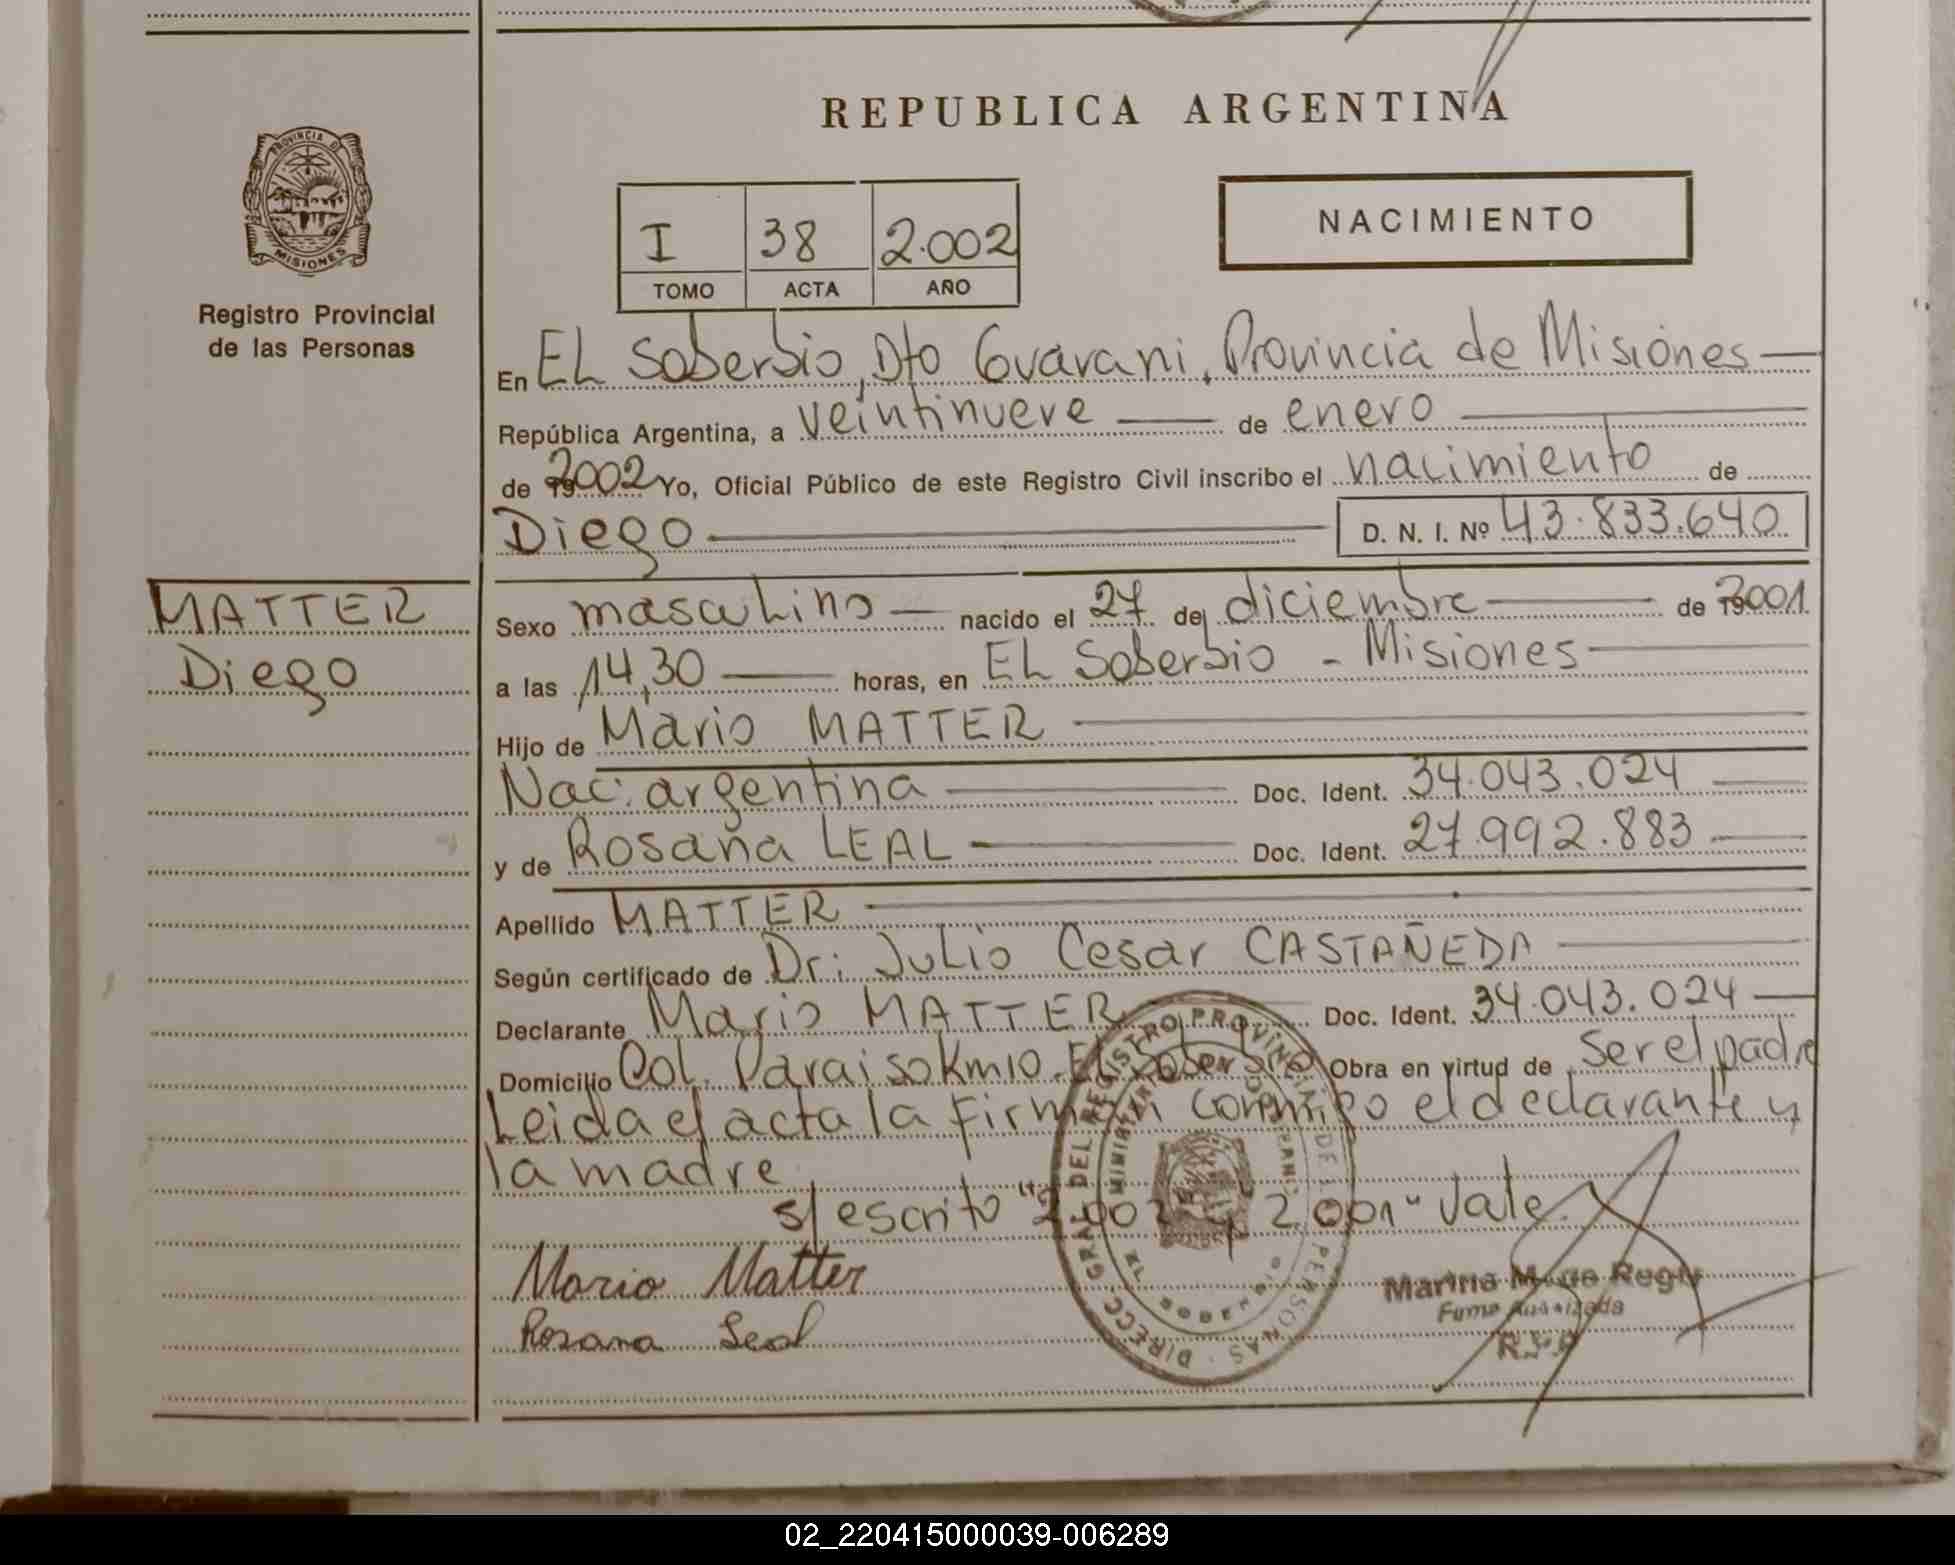 REPUBLICA ARGENTINA
PROVINCIA DE
MISIONES
Registro Provincial
de las Personas
I 38 2.002
TOMO ACTA AÑO
NACIMIENTO
En EL Soberbio, Dto Guarani, Provincia de Misiones
República Argentina, a veintinueve de enero
de 2002 Yo, Oficial Público de este Registro Civil inscribo el nacimiento de
Diego D. N. I. Nº 43.833.640
MATTER
Diego
Sexo masculino nacido el 27 de diciembre de 2001
a las 14,30 horas, en EL Soberbio - Misiones
Hijo de Mario MATTER
Nac. argentina Doc. Ident. 34.043.024
y de Rosana LEAL Doc. Ident. 27.992.883
Apellido MATTER
Según certificado de Dr: Julio Cesar CASTAÑEDA
Declarante Mario MATTER Doc. Ident. 34.043.024
Domicilio Col. Paraiso Km10. El Soberbio Obra en virtud de ser el padre
Leida el acta la firman conmigo el declarante y
la madre
s/escrito "2.002" y 2.001" vale.
Mario Matter
Rosana Leal
DIRECC. GRAL DEL REGISTRO PROVINCIAL DE PERSONAS
Marina
Firma Autorizada
02_220415000039-006289